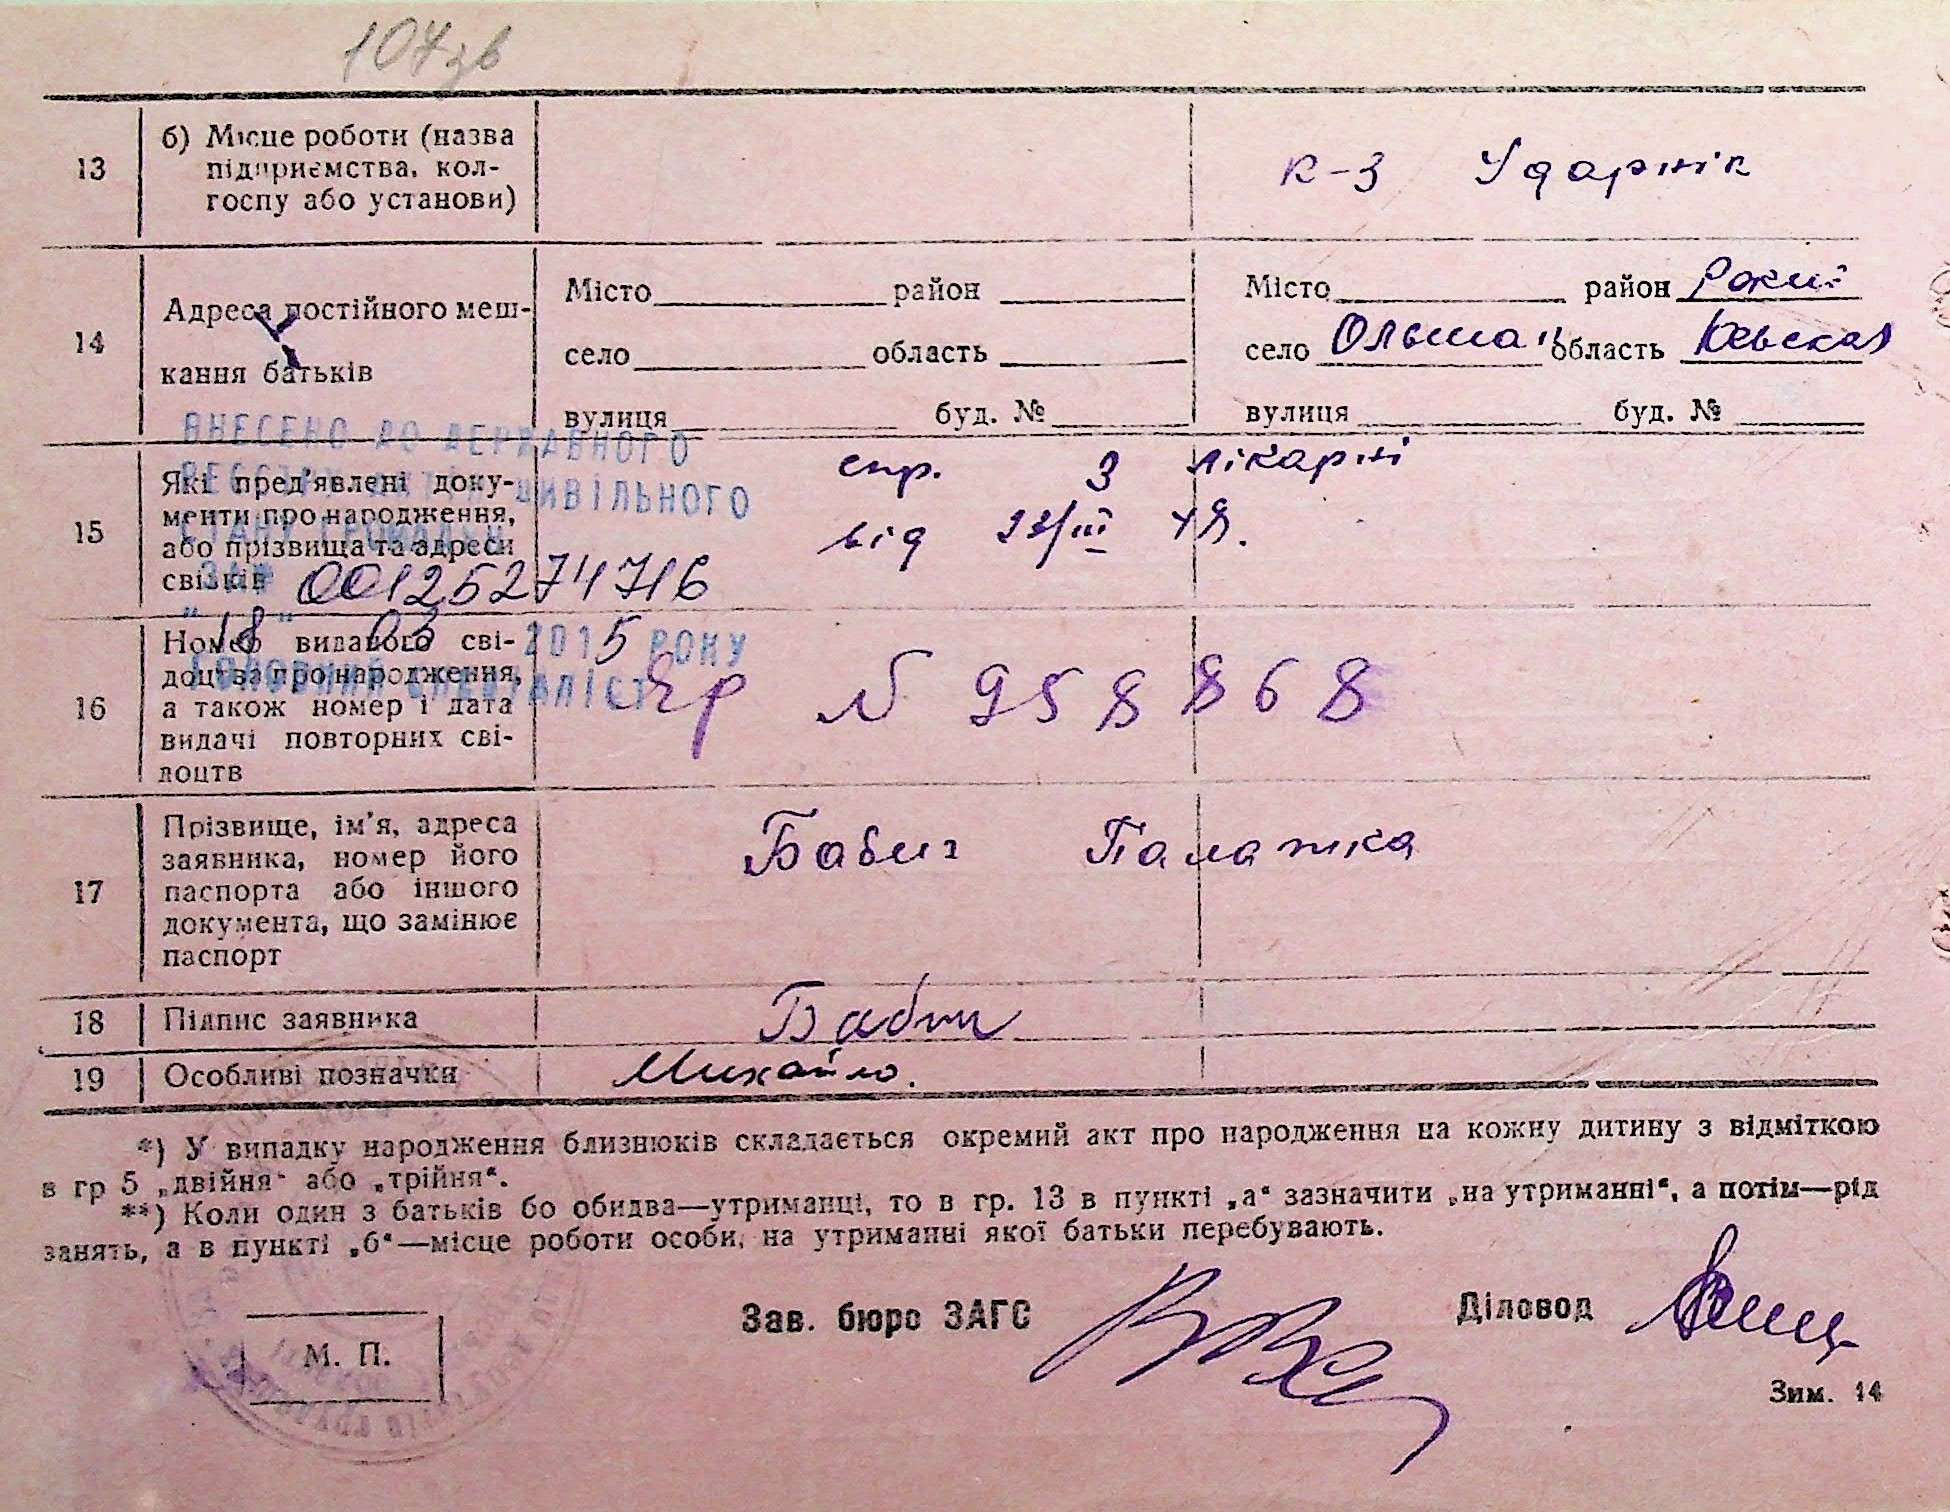 107зв
13
б) Місце роботи (назва
підприємства, кол-
госпу або установи)
к-з Ударнік
14
Адреса постійного меш-
кання батьків
Місто район
село область
вулиця буд. №
Місто район Рокит
село Ольша область
вулиця буд. №
ВНЕСЕНО ДО ДЕРЖАВНОГО
РЕЄСТРУ АКТІВ ЦИВІЛЬНОГО
СТАНУ ГРОМАДЯН
ЗА № 00125274716
"18" 03 2015 РОКУ
ГОЛОВНИЙ СПЕЦІАЛІСТ
15
Які пред'явлені доку-
менти про народження,
або прізвища та адреси
свідків
спр. з лікарні
від /III 48.
16
Номер виданого сві-
доцтва про народження,
а також номер і дата
видачі повторних сві-
доцтв
№ 958868
17
Прізвище, ім'я, адреса
заявника, номер його
паспорта або іншого
документа, що замінює
паспорт
Бабич Палажка
18
Підпис заявника
Бабич
19
Особливі позначки
Михайло.
*) У випадку народження близнюків складається окремий акт про народження на кожну дитину з відміткою
в гр 5 „двійня“ або „трійня“.
**) Коли один з батьків бо обидва—утриманці, то в гр. 13 в пункті „а“ зазначити „на утриманні“, а потім—рід
занять, а в пункті „б“—місце роботи особи, на утриманні якої батьки перебувають.
Зав. бюро ЗАГС
Діловод
М. П.
Зим. 14